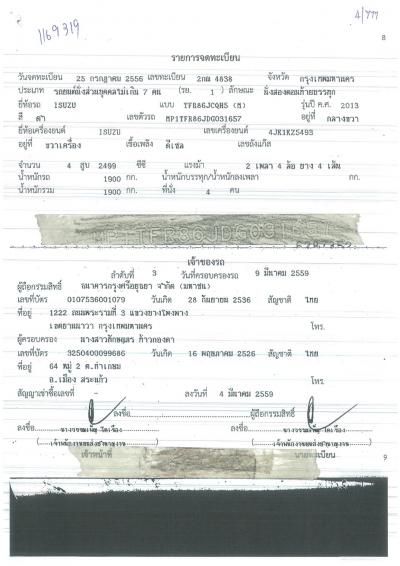 1169319
4/777
8
รายการจดทะเบียน
วันจดทะเบียน 25 กรกฎาคม 2556 เลขทะเบียน 2กผ 4838 จังหวัด กรุงเทพมหานคร
ประเภท รถยนต์นั่งส่วนบุคคลไม่เกิน 7 คน (รย. 1) ลักษณะ นั่งสองตอนท้ายบรรทุก
ยี่ห้อรถ ISUZU แบบ TFR86JCQHS (M) รุ่นปี ค.ศ. 2013
สี ดำ เลขตัวรถ MP1TFR86JDG031657 อยู่ที่ กลางขวา
ยี่ห้อเครื่องยนต์ ISUZU เลขเครื่องยนต์ 4JK1KZ5493
อยู่ที่ ขวาเครื่อง เชื้อเพลิง ดีเซล เลขถังแก๊ส
จำนวน 4 สูบ 2499 ซีซี แรงม้า 2 เพลา 4 ล้อ ยาง 4 เส้น
น้ำหนักรถ 1900 กก. น้ำหนักบรรทุก/น้ำหนักลงเพลา กก.
น้ำหนักรวม 1900 กก. ที่นั่ง 4 คน
เจ้าของรถ
ลำดับที่ 3 วันที่ครอบครองรถ 9 มีนาคม 2559
ผู้ถือกรรมสิทธิ์ ธนาคารกรุงศรีอยุธยา จำกัด (มหาชน)
เลขที่บัตร 0107536001079 วันเกิด 28 กันยายน 2536 สัญชาติ ไทย
ที่อยู่ 1222 ถนนพระรามที่ 3 แขวงบางโพงพาง
เขตยานนาวา กรุงเทพมหานคร โทร.
ผู้ครอบครอง นางสาวสักพุมร ก้าวกองคา
เลขที่บัตร 3250400099686 วันเกิด 16 พฤษภาคม 2526 สัญชาติ ไทย
ที่อยู่ 64 หมู่ 2 ต.ท่าเกษม
อ.เมือง สระแก้ว โทร.
สัญญาเช่าซื้อเลขที่ ลงวันที่ 4 มีนาคม 2559
ลงชื่อ ผู้ถือกรรมสิทธิ์
ลงชื่อ ลงชื่อ
เจ้าหน้าที่ นายทะเบียน
9